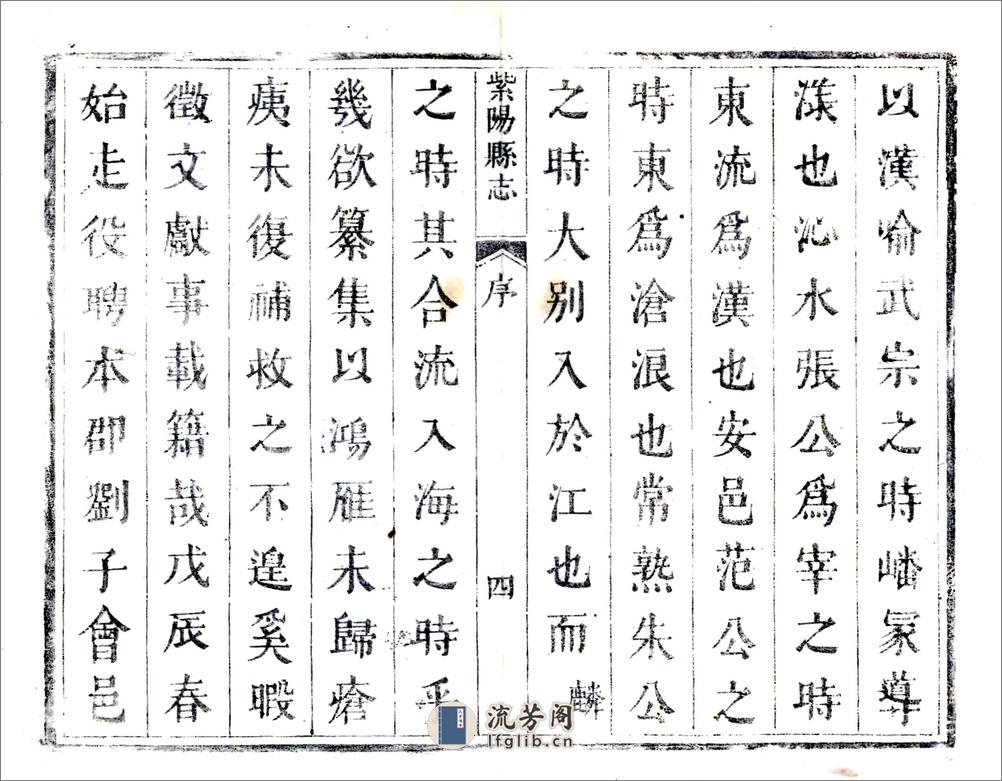 以漢喻武宗之時嶓冢導
漾也沁水張公為宰之時
東流為漢也安邑范公之
時東為滄浪也常熟朱公
之時大别入於江也而麟
紫陽縣志
序
四
之時其合流入海之時乎
幾欲纂集以鴻雁未歸瘡
痍未復補救之不遑奚暇
徵文獻事載籍哉戊辰春
始走役聘本郡劉子會邑
流芳阁
lfglib.cn